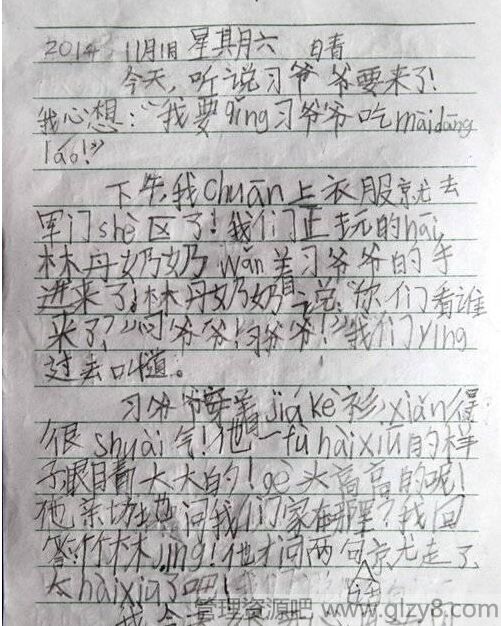 2014 11月1日 星其月六 日青
今天,听说习爷爷要来了!
我心想:“我要qǐng习爷爷吃màidāng
láo!”
下午,我chuān上衣服就去
军门shè区了!我们正玩的hāi,
林丹奶奶wǎn着习爷爷的手
进来了,林丹奶奶说:“你们看谁
来了?”“习爷爷!习爷爷!”我们yíng
过去叫道。
习爷爷穿着jiákè衫,xiǎn得
很shuài气!他一fù hàixiū的样
子,眼睛大大的!gè头高高的呢!
他亲切地问我们家在哪里?我回
答:竹林jìng!他才问两句就走了
太hàixiū了吧!
管理资源吧 www.glzy8.com